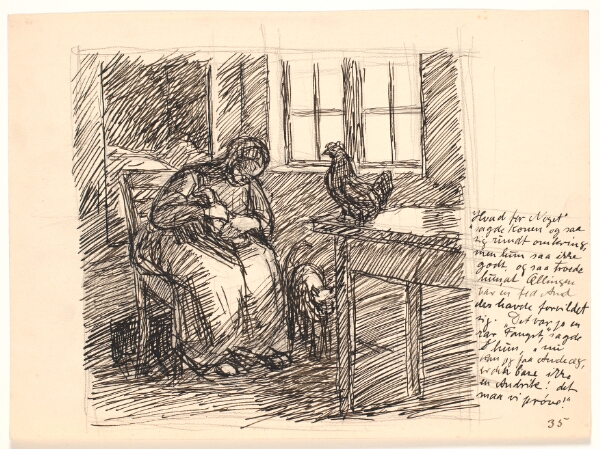 "Hvad for Noget"
sagde Konen og saa
sig rundt omkring,
men hun saa ikke
godt, og saa troede
hun at Ællingen
var en fed And
der havde forvildet
sig. "Det var jo en
rar Fangst," sagde
hun, "nu
kan jeg faa Andeæg,
er den bare ikke
en Andrik! det
maa vi prøve!"
35